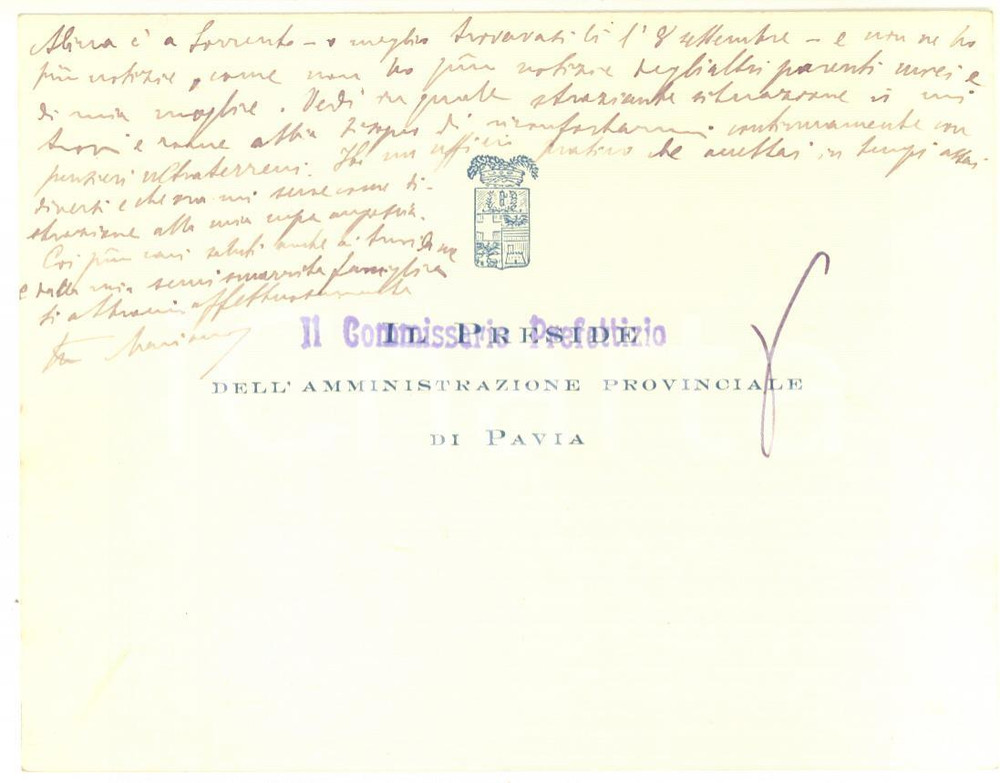 è a Sorrento – o meglio trovavasi lì l'8 settembre – e non ne ho
più notizie, come non ho più notizie degli altri parenti miei e
di mia moglie. Vedi in quale straziante situazione io mi
trovi e come abbia bisogno di riconfortarmi continuamente con
pensieri ultraterreni. Ho un ufficio che accettai in tempi assai
diversi e che ora mi serve come di-
strazione alla mia cupa angoscia.
Coi più cari saluti anche ai tuoi da me
e dalla mia semismarrita famigliola
ti abbraccio affettuosamente
Il Commissario Prefettizio
IL PRESIDE
DELL'AMMINISTRAZIONE PROVINCIALE
DI PAVIA